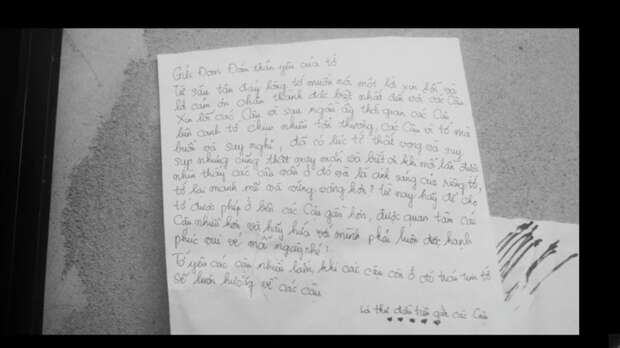 Gửi Đom Đóm thân yêu của tớ
Từ sâu tận đáy lòng tớ muốn nói một lời xin lỗi và
lời cảm ơn chân thành đặc biệt nhất đối với các Cậu.
Xin lỗi các Cậu vì sau ngần ấy thời gian các Cậu
bên cạnh tớ chịu nhiều tổn thương, các Cậu vì tớ mà
buồn và suy nghĩ, đã có lúc tớ thất vọng và suy
sụp nhưng cũng thật may mắn và biết ơn khi mỗi lần được
nhìn thấy các cậu vẫn ở đó và là ánh sáng của riêng tớ,
tớ lại mạnh mẽ và vững vàng hơn? từ nay hãy để cho
tớ được phép ở bên các Cậu gần hơn, được quan tâm các
Cậu nhiều hơn và hãy hứa với mình phải luôn được hạnh
phúc vui vẻ mỗi ngày nhé!
Tớ yêu các cậu nhiều lắm, khi các cậu còn ở đó trái tim tớ
sẽ luôn hướng về các cậu
Lá thư đầu tiên gửi các Cậu